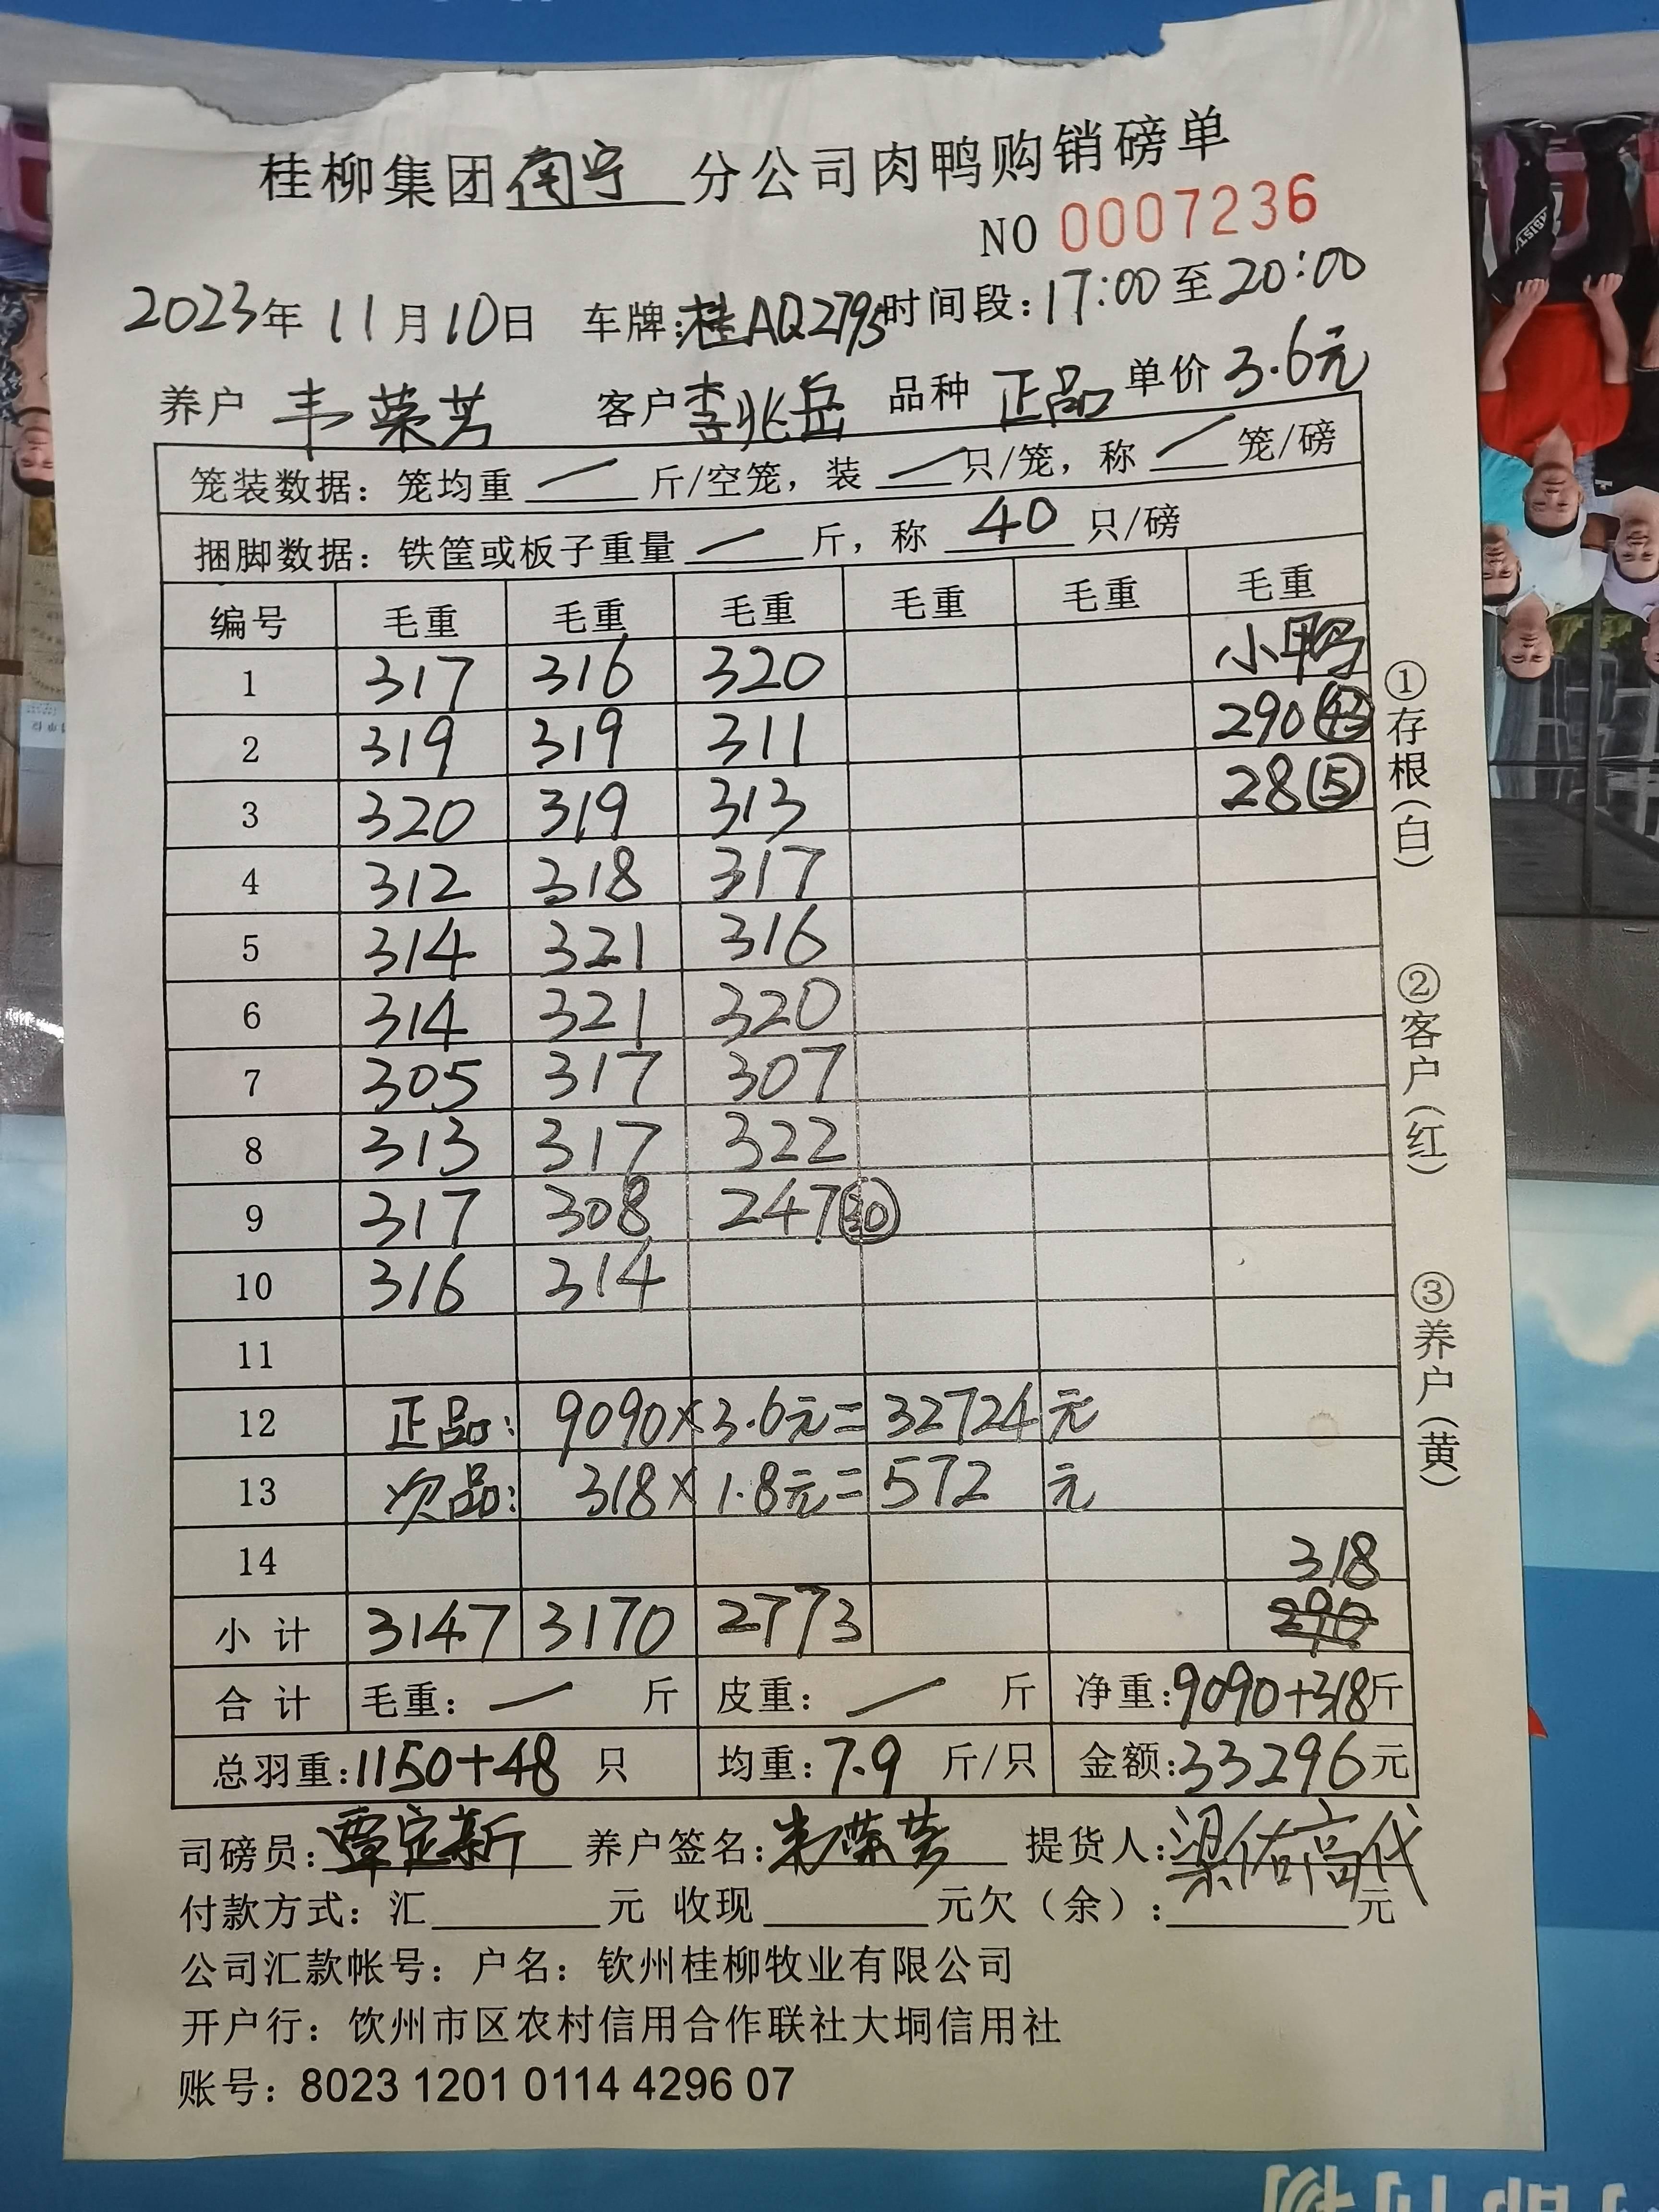 桂柳集团南宁分公司肉鸭购销磅单
NO 0007236
2023年 11月10日 车牌:桂AQ2795时间段:17:00至20:00
养户 韦荣芳 客户李兆岳 品种 正品 单价 3.6元
笼装数据: 笼均重 — 斤/空笼, 装 — 只/笼, 称 — 笼/磅
捆脚数据: 铁筐或板子重量 — 斤, 称 40 只/磅
编号 毛重 毛重 毛重 毛重 毛重 毛重
1 317 316 320 小鸭
2 319 319 311 290 (43)
3 320 319 313 28 (5)
4 312 318 317
5 314 321 316
6 314 321 320
7 305 317 307
8 313 317 322
9 317 308 247 (30)
10 316 314
11
12 正品: 9090×3.6元=32724元
13 次品: 318×1.8元=572 元
14 318
小计 3147 3170 2773 290
合计 毛重: — 斤 皮重: — 斤 净重:9090+318斤
总羽重:1150+48 只 均重:7.9 斤/只 金额:33296元
司磅员:覃定新 养户签名:韦荣芳 提货人:梁佑高代
付款方式: 汇 元 收现 元欠(余): 元
公司汇款帐号: 户名: 钦州桂柳牧业有限公司
开户行: 饮州市区农村信用合作联社大垌信用社
账号: 8023 1201 0114 4296 07
①存根(白)
②客户(红)
③养户(黄)